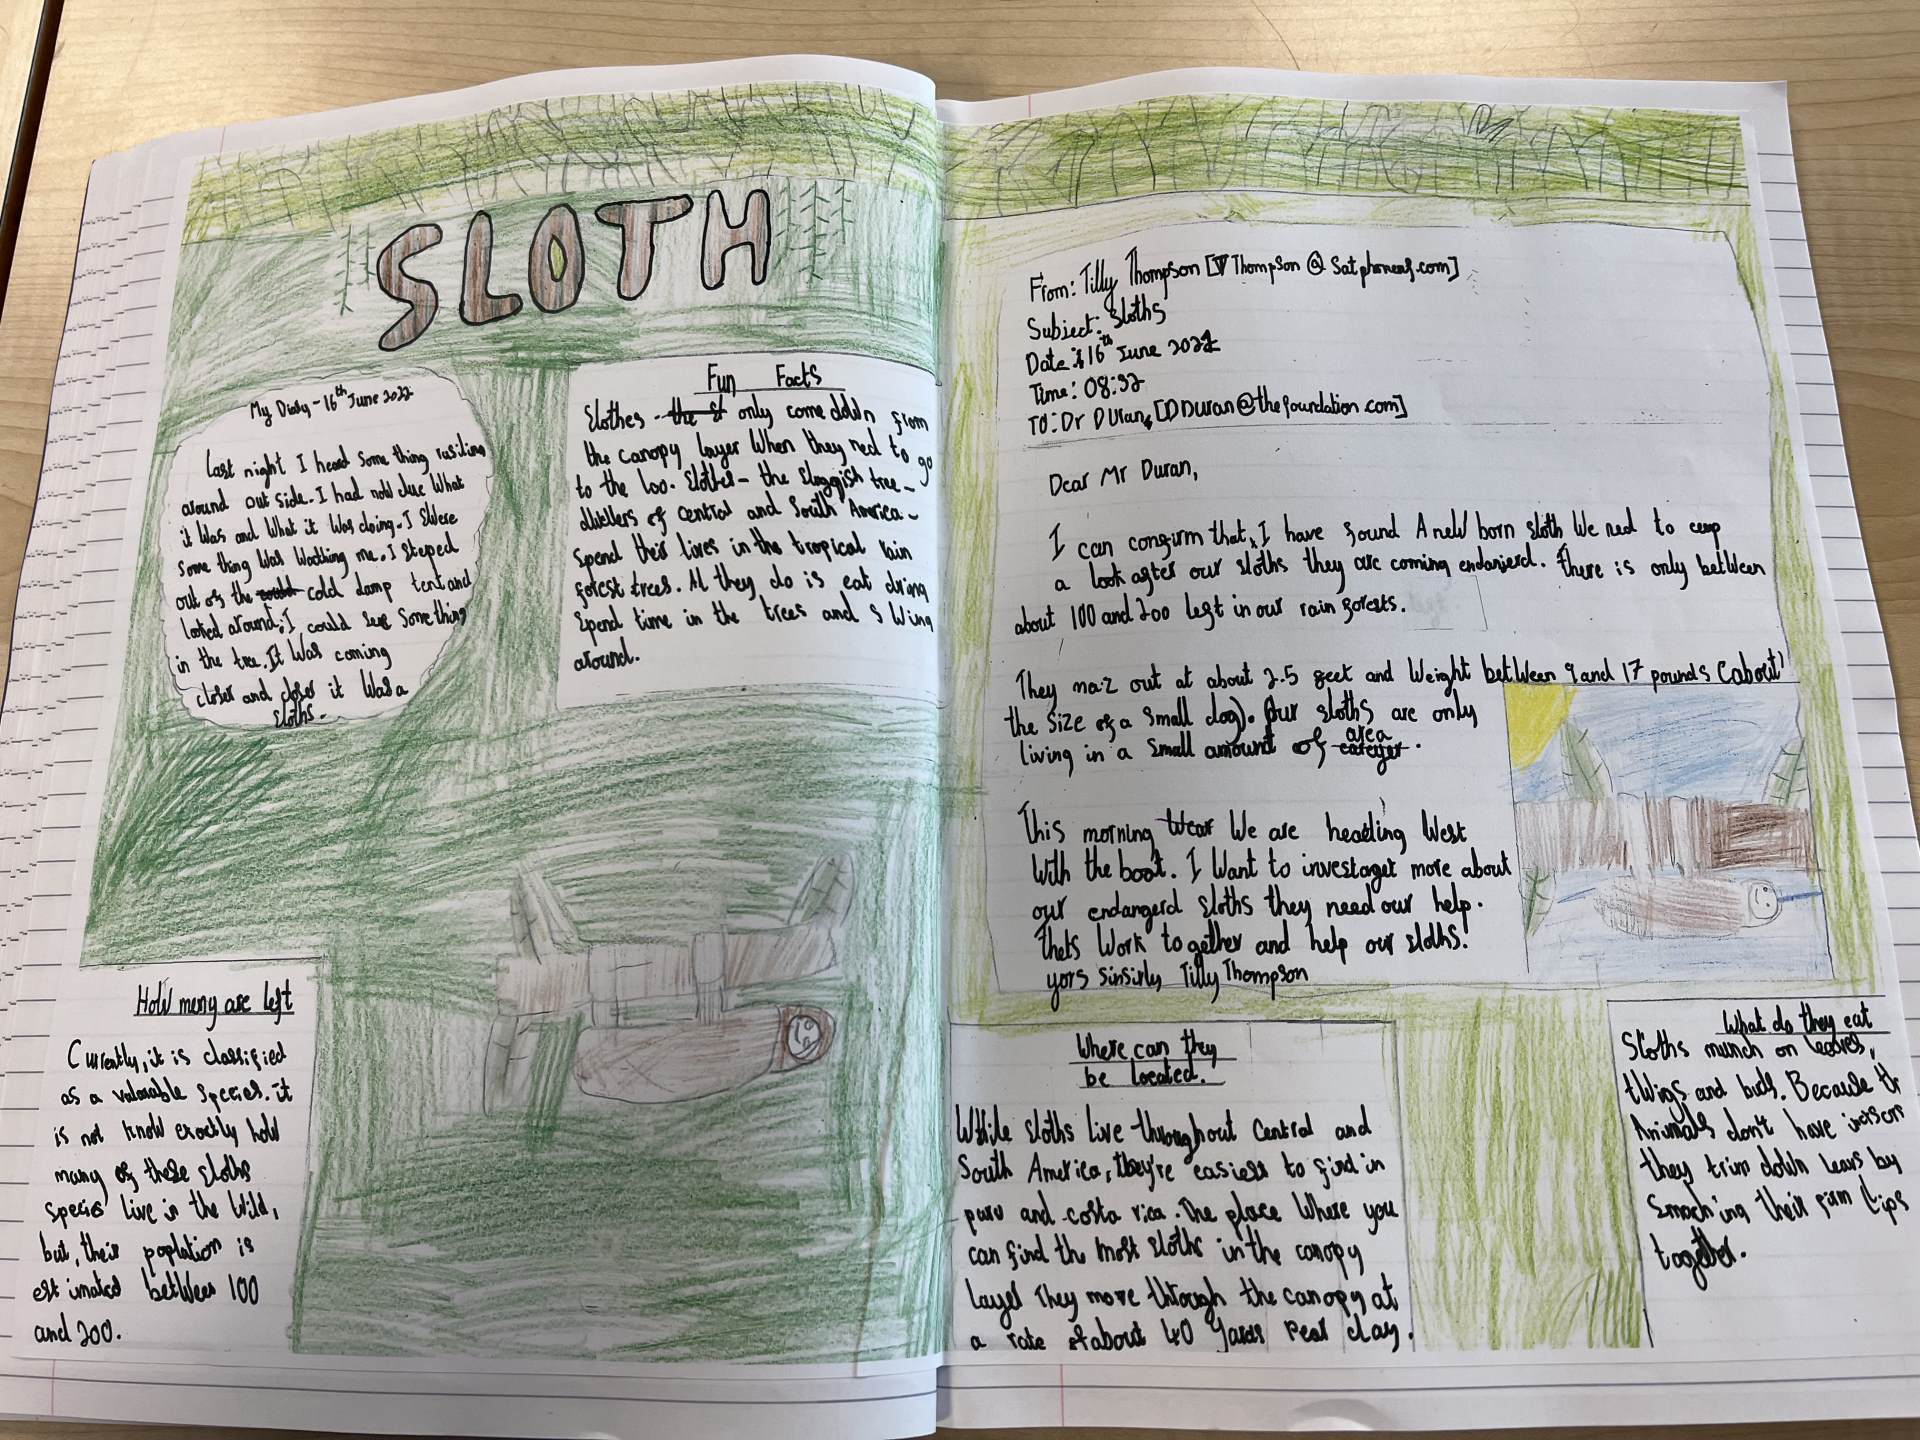 SLOTH
My Diary - 16th June 2022
Last night I heard some thing rusiling
around out side. I had now clue what
it was and what it was doing. I swere
some thing was wacthing me. I steped
out of the could cold damp tent and
looked around. I could see something
in the tree. It was coming
closer and closer it was a
sloths.
Fun Facts
Slothes the sl only come down from
the canopy layer when they ned to go
to the loo. Slothes - the sluggish tree -
dwellers of central and south America -
spend their lives in the tropical rain
forest trees. All they do is eat dring
spend time in the trees and swing
around.
How meny are left
Currently, it is classified
as a valnarable species. it
is not know exactly how
many of these sloths
species live in the wild,
but, their poplation is
estimated between 100
and 200.
From: Tilly Thompson [TThompson@satphonenf.com]
Subject: Sloths
Date: 16th June 2022
Time: 08:32
To: Dr Duran, [DDuran@thefoundation.com]
Dear Mr Duran,
I can confirm that, I have found A new born sloth We ned to ceep
a look after our sloths they are coming endanjerd. there is only between
about 100 and 200 left in our rain forests.
They maz out at about 2.5 feet and weight between 9 and 17 pounds (about
the size of a small dog). Our sloths are only
living in a small amount of area
This morning wear we are heading west
with the boat. I want to investaget more about
our endangerd sloths they need our help.
thets work together and help our sloths!
yors sinsirly Tilly Thompson
Where can they
be located.
While sloths live throughout Central and
South America, they're easiest to find in
puru and costa rica. The place where you
can find the most sloths in the canopy
layer They move through the canopy at
a rate of about 40 yards pear day.
What do they eat
Sloths munch on leaves,
twigs and buds. Because the
Animals don't have incisors
they trim down leavs by
smaching their firm lips
together.